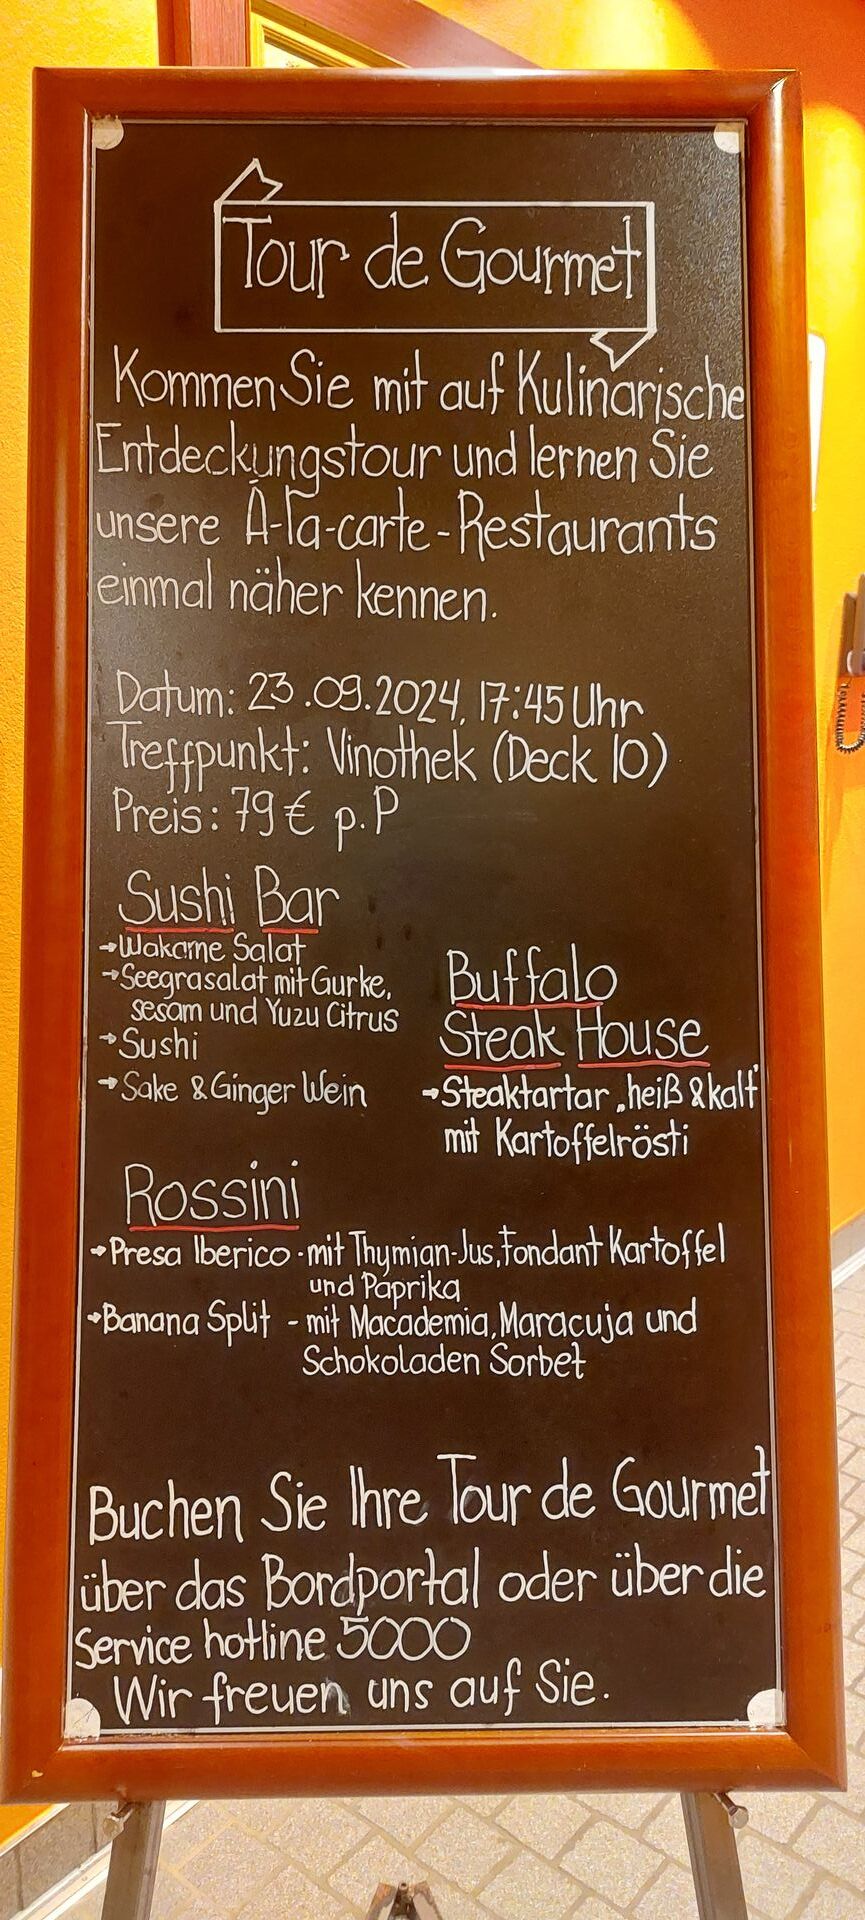 Tour de Gourmet
Kommen Sie mit auf Kulinarische
Entdeckungstour und lernen Sie
unsere À-la-carte-Restaurants
einmal näher kennen.
Datum: 23.09.2024, 17:45 Uhr
Treffpunkt: Vinothek (Deck 10)
Preis: 79€ p.P
Sushi Bar
→Wakame Salat
→Seegrasalat mit Gurke,
sesam und Yuzu Citrus
→Sushi
→Sake & Ginger Wein
Buffalo
Steak House
→Steaktartar „heiß & kalt"
mit Kartoffelrösti
Rossini
→Presa Iberico - mit Thymian-Jus, Fondant Kartoffel
und Paprika
→Banana Split - mit Macademia, Maracuja und
Schokoladen Sorbet
Buchen Sie Ihre Tour de Gourmet
über das Bordportal oder über die
Service hotline 5000
Wir freuen uns auf Sie.